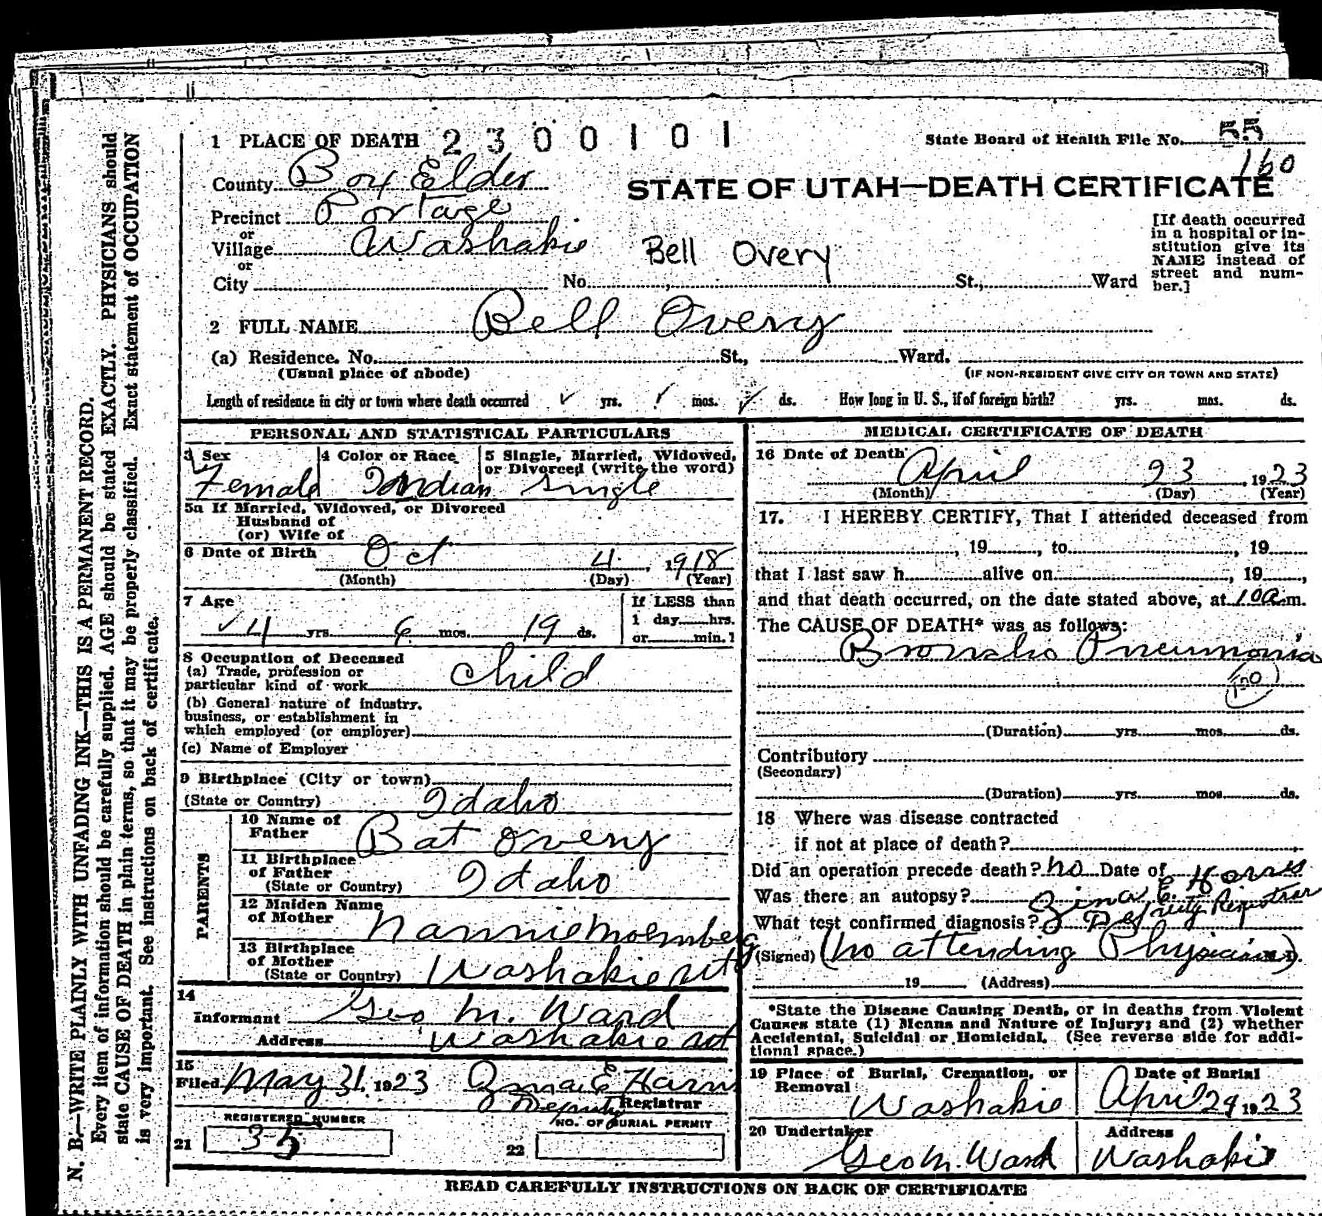 1 PLACE OF DEATH 2300101 State Board of Health File No. 55
160
County Box Elder
STATE OF UTAH—DEATH CERTIFICATE
Precinct Portage
or
Village Washakie
Bell Overy
or
City No. St., Ward
[If death occurred in a hospital or in-
stitution give its
NAME instead of
street and num-
ber.]
2 FULL NAME Bell Overy
(a) Residence. No. St., Ward.
(Usual place of abode) (IF NON-RESIDENT GIVE CITY OR TOWN AND STATE)
Length of residence in city or town where death occurred yrs. mos. ds. How long in U. S., if of foreign birth? yrs. mos. ds.
PERSONAL AND STATISTICAL PARTICULARS
3 Sex 4 Color or Race 5 Single, Married, Widowed,
or Divorced (write the word)
Female Indian Single
5a If Married, Widowed, or Divorced
Husband of
(or) Wife of
6 Date of Birth Oct 4, 1918
(Month) (Day) (Year)
7 Age If LESS than
4 yrs. 6 mos. 19 ds. 1 day hrs.
or min.?
8 Occupation of Deceased
(a) Trade, profession or
particular kind of work Child
(b) General nature of industry,
business, or establishment in
which employed (or employer)
(c) Name of Employer
9 Birthplace (City or town)
(State or Country) Idaho
PARENTS
10 Name of
Father Bat Overy
11 Birthplace
of Father
(State or Country) Idaho
12 Maiden Name
of Mother Nannie Moemberg
13 Birthplace
of Mother
(State or Country) Washakie Utg
14
Informant Geo M. Ward
Address Washakie Ut
15
Filed May 31, 1923 Zina E Harris
Deputy Registrar
REGISTERED NUMBER NO. OF BURIAL PERMIT
21 35 22
MEDICAL CERTIFICATE OF DEATH
16 Date of Death April 23, 1923
(Month) (Day) (Year)
17. I HEREBY CERTIFY, That I attended deceased from
, 19 , to , 19
that I last saw h alive on , 19 ,
and that death occurred, on the date stated above, at 10 a.m.
The CAUSE OF DEATH* was as follows:
Broncho Pneumonia
100
(Duration) yrs. mos. ds.
Contributory
(Secondary)
(Duration) yrs. mos. ds.
18 Where was disease contracted
if not at place of death?
Did an operation precede death? no Date of
Was there an autopsy? Zina E. Harris
What test confirmed diagnosis? Deputy Registrar
(Signed) (No attending Physician) M. D.
19 (Address)
*State the Disease Causing Death, or in deaths from Violent
Causes state (1) Means and Nature of Injury; and (2) whether
Accidental, Suicidal or Homicidal. (See reverse side for addi-
tional space.)
19 Place of Burial, Cremation, or
Removal Date of Burial
Washakie April 29 1923
20 Undertaker Address
Geo M. Ward Washakie
READ CAREFULLY INSTRUCTIONS ON BACK OF CERTIFICATE
N. B.—WRITE PLAINLY WITH UNFADING INK—THIS IS A PERMANENT RECORD.
Every item of information should be carefully supplied. AGE should be stated EXACTLY. PHYSICIANS should
state CAUSE OF DEATH in plain terms, so that it may be properly classified. Exact statement of OCCUPATION
is very important. See instructions on back of certificate.